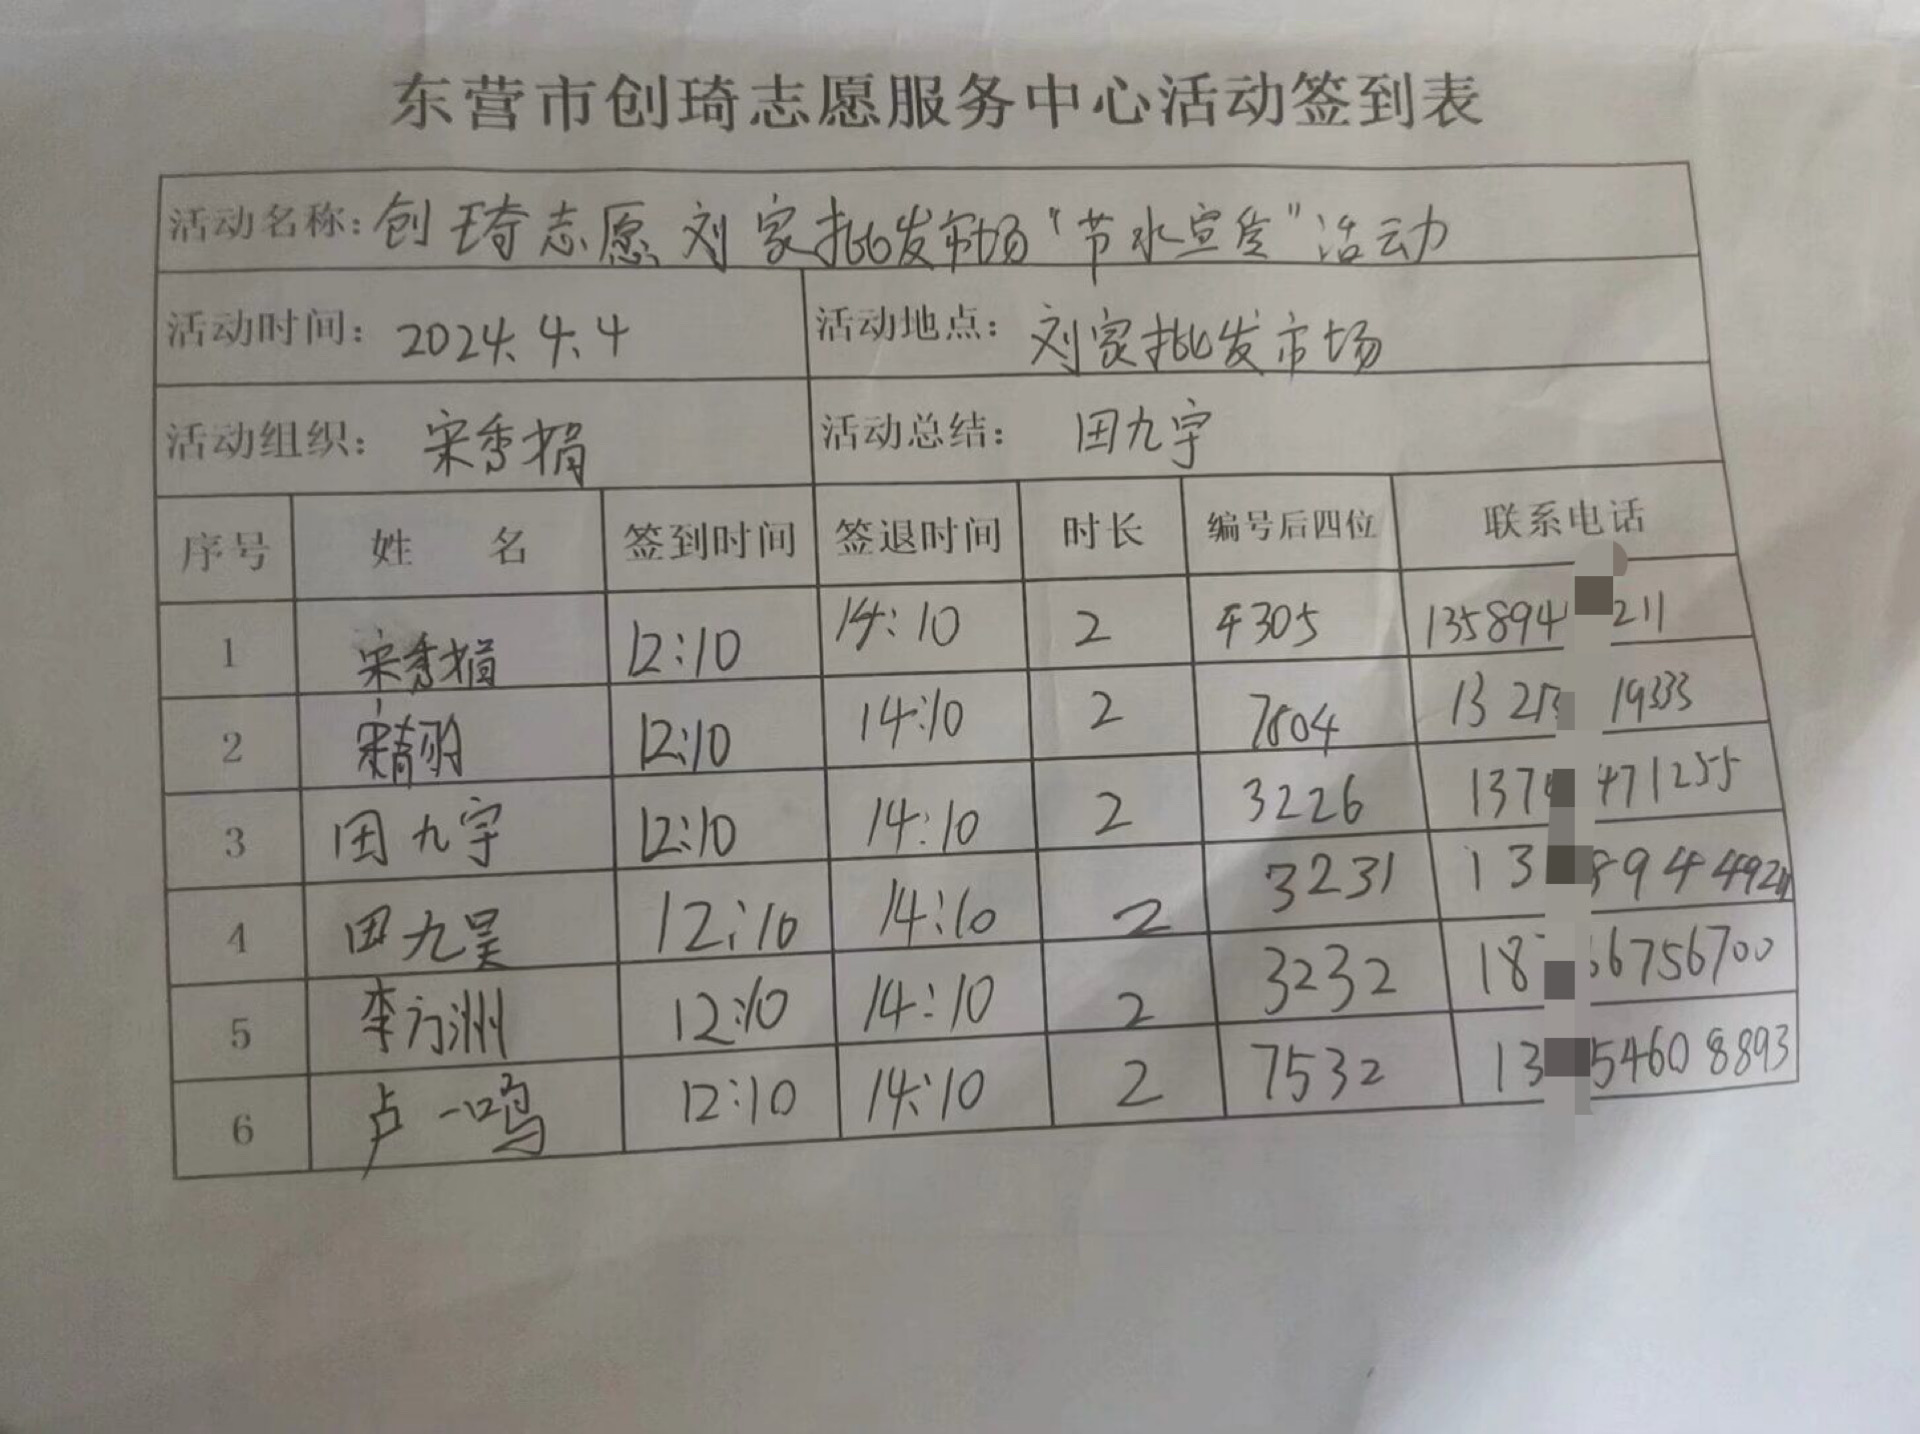 东营市创琦志愿服务中心活动签到表
活动名称: 创琦志愿刘家批发市场"节水宣传"活动
活动时间: 2024.4.4 活动地点: 刘家批发市场
活动组织: 宋秀娟 活动总结: 田九宇
序号 姓 名 签到时间 签退时间 时长 编号后四位 联系电话
1 宋秀娟 12:10 14:10 2 4305 135894 211
2 12:10 14:10 2 7804 13 19333
3 田九宇 12:10 14:10 2 3226 137 471255
4 田九昊 12:10 14:10 2 3231 13 894
5 李方洲 12:10 14:10 2 3232 18 66756700
6 卢一鸣 12:10 14:10 2 7532 13 54608893